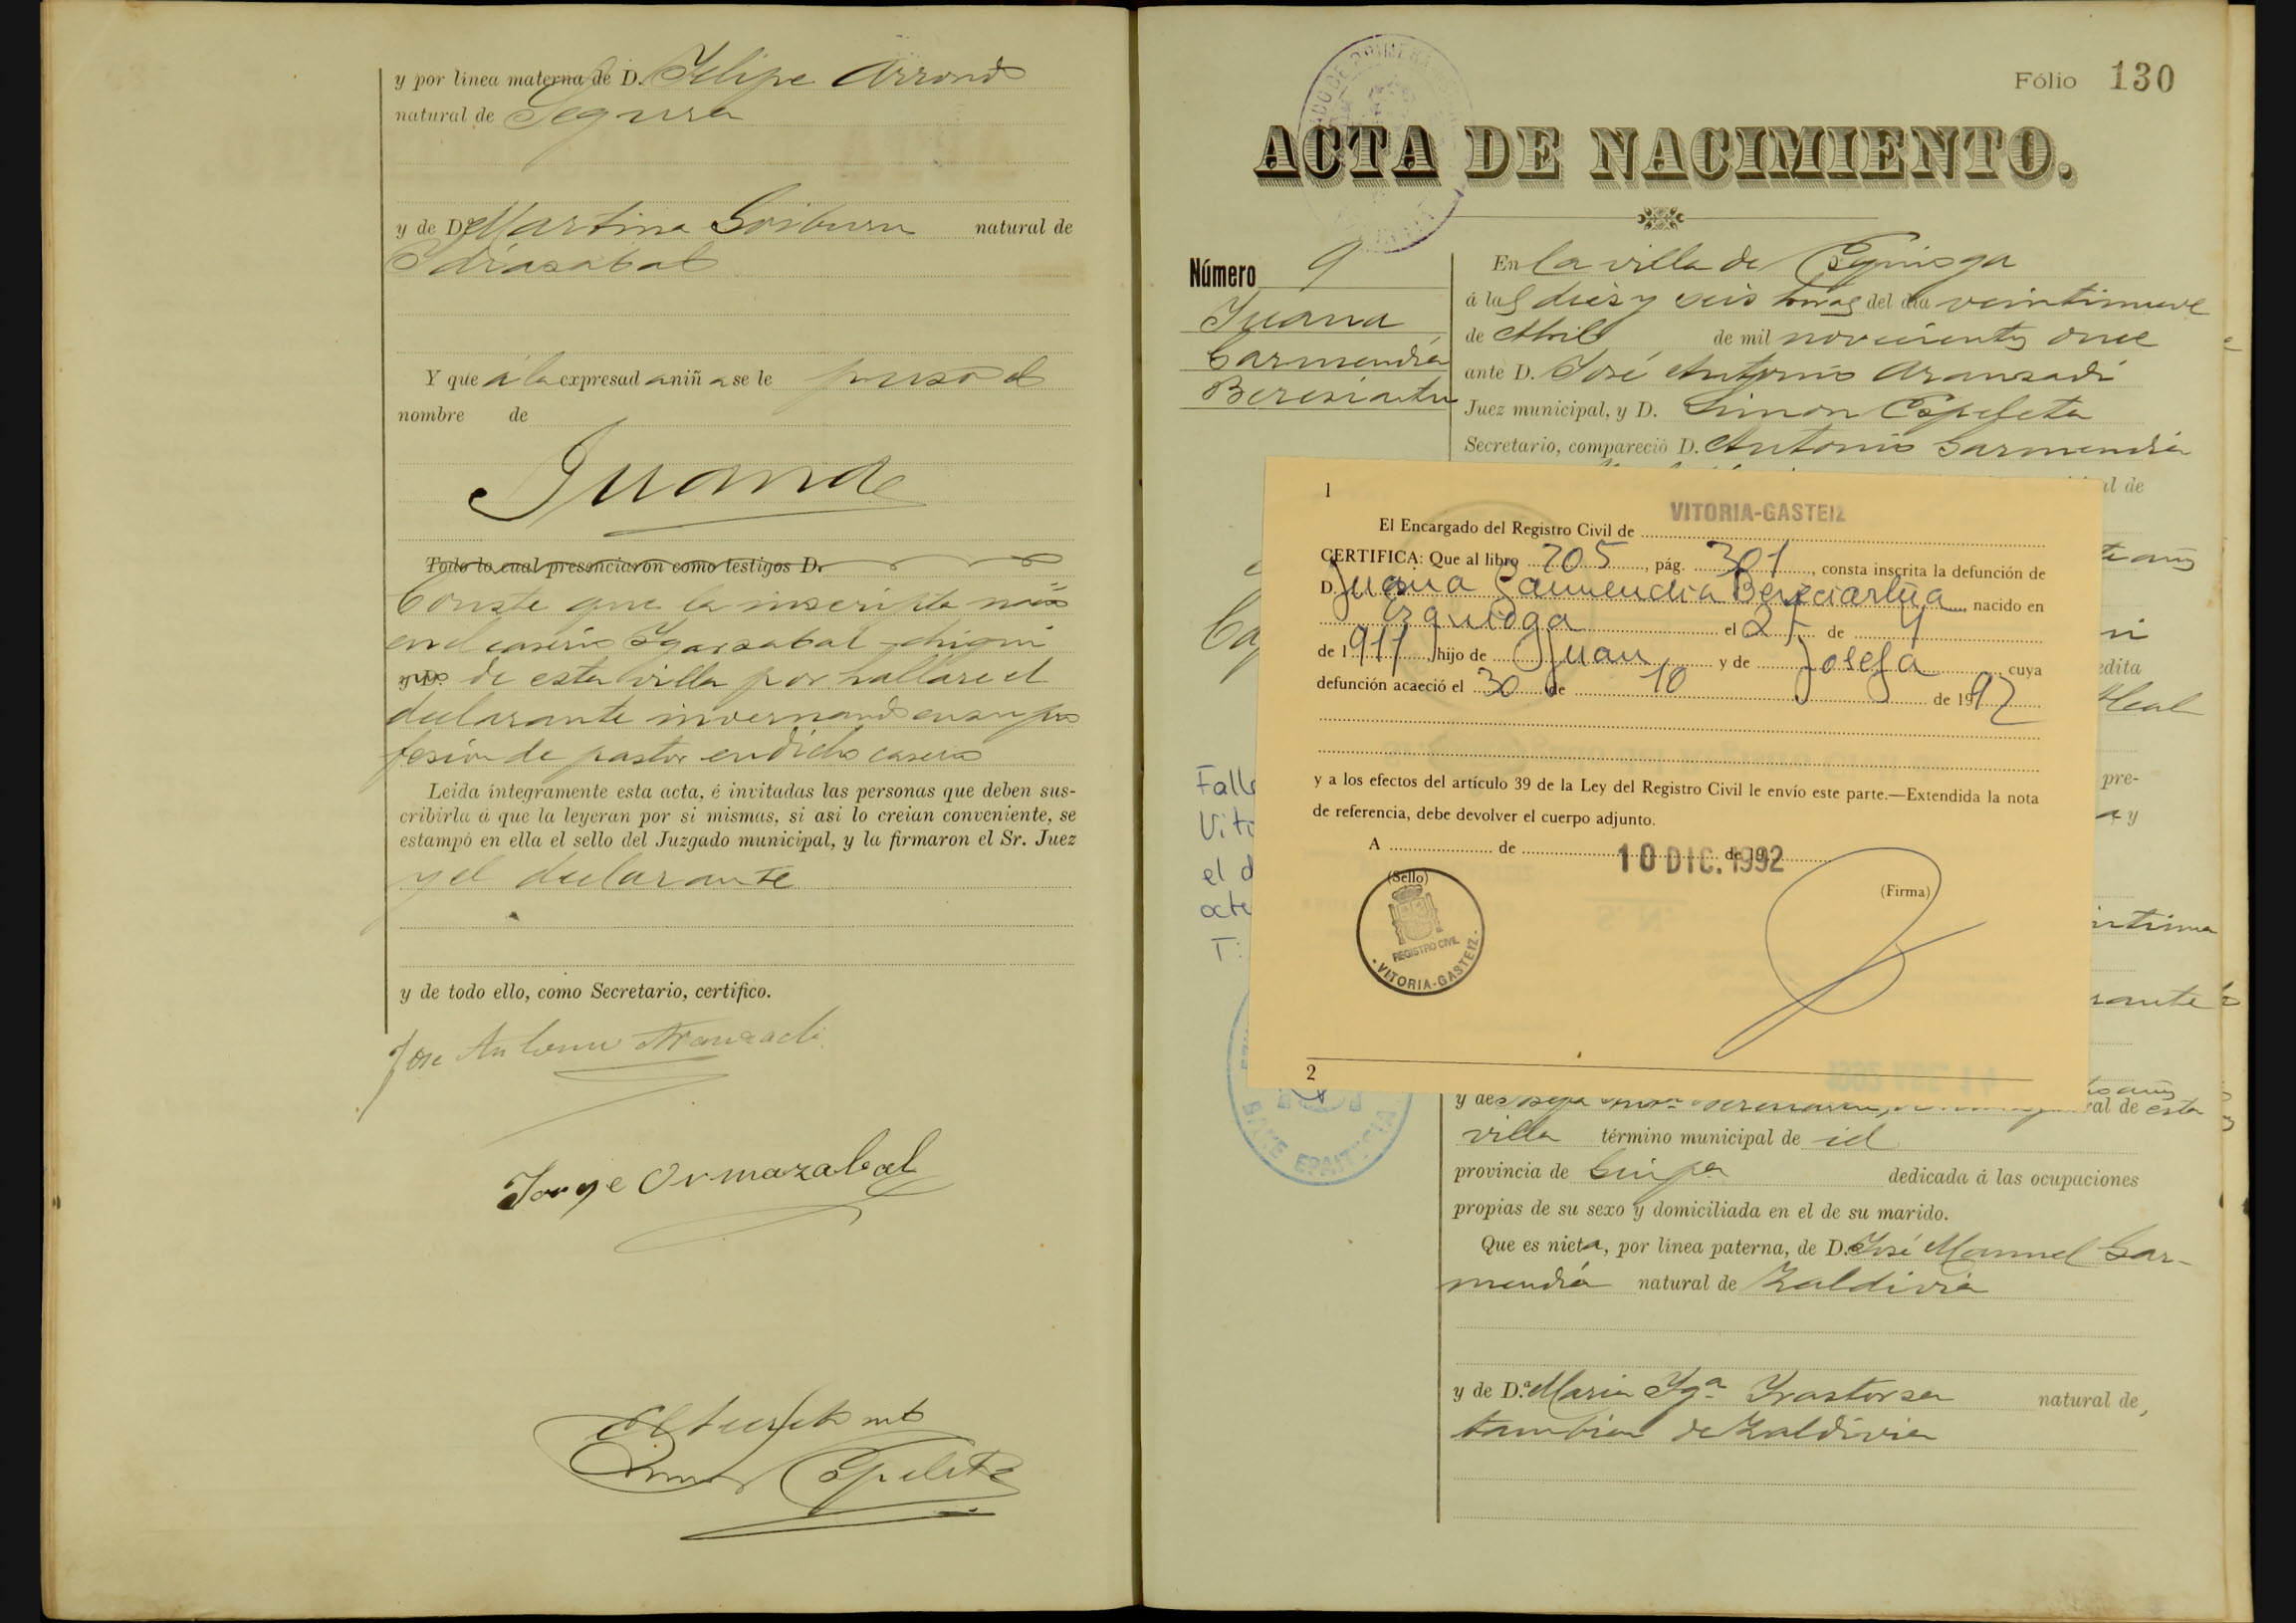 y por línea materna de D. Felipe Arrondo
natural de Segura
y de D.ª Martina Goiburu natural de
Idiazabal
Y que á la expresada niña se le puso el
nombre de
Juana
Todo lo cual presenciaron como testigos D.
Conste que la inscripta nació
en el caserío Igarzabal-chiqui
y D. de esta villa por hallarse el
declarante invernando en su pro
fesión de pastor en dicho caserio
Leida íntegramente esta acta, é invitadas las personas que deben sus-
cribirla á que la leyeran por si mismas, si asi lo creian conveniente, se
estampó en ella el sello del Juzgado municipal, y la firmaron el Sr. Juez
y el declarante
y de todo ello, como Secretario, certifico.
Jose Antonio Aranzadi
Jorge Ormazabal
Simon Espeleta
Fólio 130
ACTA DE NACIMIENTO.
Número 9
Juana
Garmendia
Bereciartu
En la villa de Ezquioga
á las diez y seis horas del día veintinueve
de Abril de mil novecientos once
ante D. José Antonio Aranzadi
Juez municipal, y D. Simon Espeleta
Secretario, compareció D. Antonio Garmendia
al de
edita
pre-
a y
Falle
Vito
el d
octu
T:
1
El Encargado del Registro Civil de VITORIA-GASTEIZ
CERTIFICA: Que al libro 205, pág. 301, consta inscrita la defunción de
D. Juana Garmendia Bereciartúa nacido en
Ezquioga el 27 de 4
de 1911 hijo de Juan y de Josefa cuya
defunción acaeció el 30 de 10 de 1992
y a los efectos del artículo 39 de la Ley del Registro Civil le envío este parte.—Extendida la nota
de referencia, debe devolver el cuerpo adjunto.
A de de 19
10 DIC. 1992
(Sello)
(Firma)
REGISTRO CIVIL
· VITORIA-GASTEIZ ·
2
ral de esta
villa término municipal de id
provincia de Guip.a dedicada á las ocupaciones
propias de su sexo y domiciliada en el de su marido.
Que es nieta, por línea paterna, de D. José Manuel Gar-
mendia natural de Zaldivia
y de D.ª Maria Ig.ª Irastorza natural de
tambien de Zaldivia